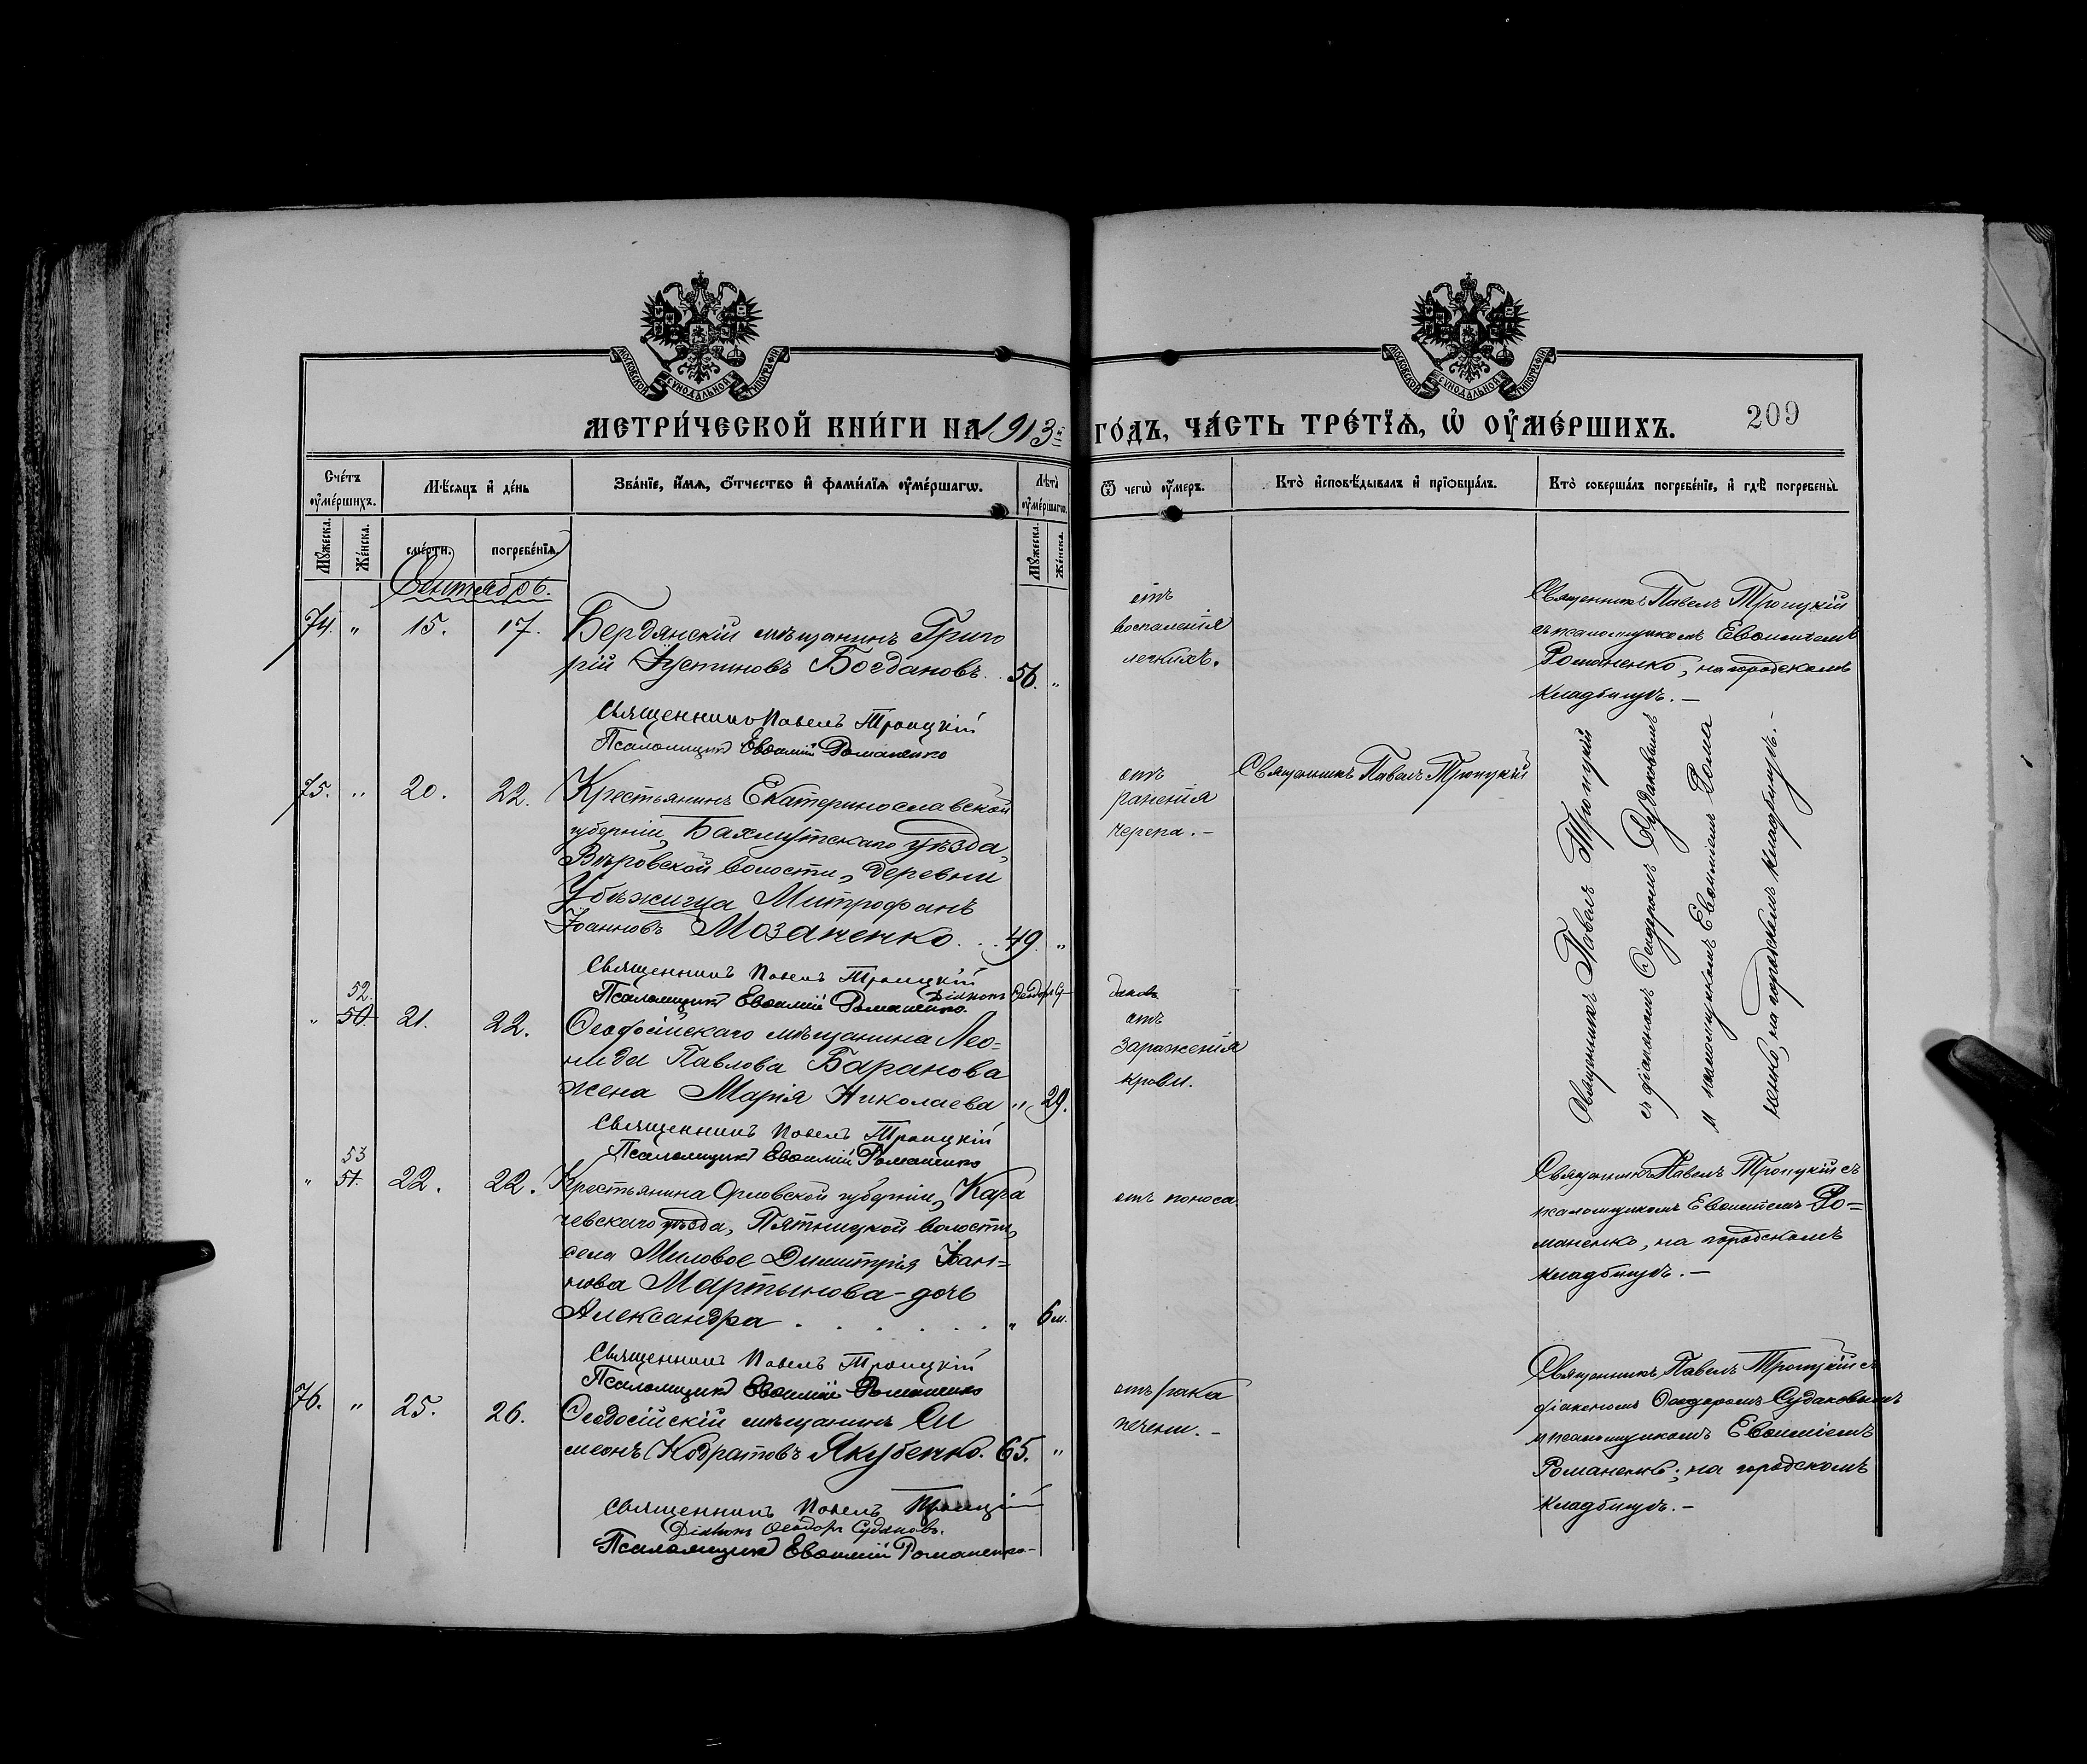 МОСКОВСКОЙ СУНОДАЛЬНОЙ ТИПОГРАФІИ
МОСКОВСКОЙ СУНОДАЛЬНОЙ ТИПОГРАФІИ
МЕТРИ́ЧЕСКОЙ КНИ́ГИ НА 1913 й
ГО́ДЪ, ЧА́СТЬ ТРЕ́ТЇѦ, Ѡ҆ ОУ҆МЕ́РШИХЪ.
209
Сче́тъ оу҆ме́ршихъ.
Мѣ́сяцъ и҆ де́нь
Зва́нїе, и҆́мѧ, ѻ҆́тчество и҆ фами́лїѧ оу҆ме́ршагѡ.
Лѣ́та оу҆ме́ршагѡ.
Ѿ чегѡ̀ оу҆́меръ.
Кто̀ и҆сповѣ́дывалъ и҆ прїѡбща́лъ.
Кто̀ соверша́лъ погребе́нїе, и҆ гдѣ̀ погребены̀.
Мꙋ́жеска.
Же́нска.
сме́рти.
погребе́нїѧ.
Мꙋ́жеска.
Же́нска.
Сентябрь.
74. " 15. 17. Бердянскій мѣщанинъ Григо
рій Іустиновъ Богдановъ. 56. "
Священникъ Павелъ Троицкій
Псаломщикъ Евѳимій Романенко
отъ
воспаленія
легкихъ.
Священникъ Павелъ Троицкій
съ псаломщикомъ Евѳиміемъ
Романенко, на городскомъ
кладбищѣ.—
75. " 20. 22. Крестьянинъ Екатеринославской
губерніи, Бахмутскаго уѣзда,
Вѣровской волости, деревни
Убѣжища Митрофанъ
Іоанновъ Мозаненко. . . 49. "
Священникъ Павелъ Троицкій
Псаломщикъ Евѳимій Романенко. Діаконъ Ѳеодоръ Су-
даковъ
отъ
раненія
черепа.—
Священникъ Павелъ Троицкій
Священникъ Павелъ Троицкій
съ діакономъ Ѳеодоромъ Судаковымъ
и псаломщикомъ Евѳиміемъ Рома
ненко, на городскомъ кладбищѣ.—
52.
" 50. 21. 22. Ѳеодосійскаго мѣщанина Лео=
нида Павлова Баранова
жена Марія Николаева " 29.
Священникъ Павелъ Троицкій
Псаломщикъ Евѳимій Романенко
отъ
зараженія
крови.
53
" 51. 22. 22. Крестьянина Орловской губерніи, Кара
чевскаго уѣзда, Пятницкой волости,
села Миловое Димитрія Іоан=
нова Мартынова-дочь
Александра . . . . . . " 6 м.
Священникъ Павелъ Троицкій
Псаломщикъ Евѳимій Романенко
отъ поноса.
Священникъ Павелъ Троицкій съ
псаломщикомъ Евѳиміемъ Ро=
маненко, на городскомъ
кладбищѣ.—
76. " 25. 26. Ѳеодосійскій мѣщанинъ Си
меонъ Кодратовъ Якубенко. 65. "
Священникъ Павелъ Троицкій
Діаконъ Ѳеодоръ Судаковъ.
Псаломщикъ Евѳимій Романенко-
отъ рака
печени.—
Священникъ Павелъ Троицкій съ
діакономъ Ѳеодоромъ Судаковымъ
и псаломщикомъ Евѳиміемъ
Романенко; на городскомъ
кладбищѣ.—